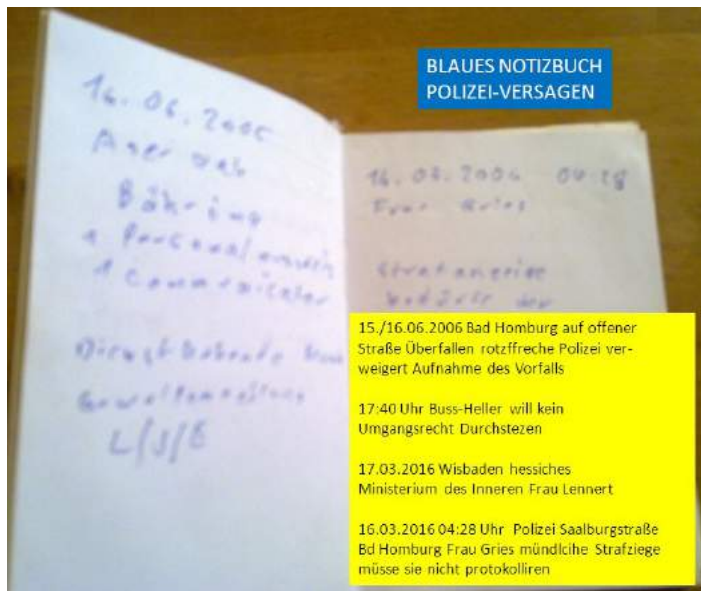 BLAUES NOTIZBUCH
POLIZEI-VERSAGEN
16.06.2006
Bähring
1 Personalausweis
1 Communicator
Diensthabende
L/S/E
16.03.2006 04:28
Frau Gries
Strafanzeige
bedürfe der
15./16.06.2006 Bad Homburg auf offener
Straße Überfallen rotzffreche Polizei ver-
weigert Aufnahme des Vorfalls
17:40 Uhr Buss-Heller will kein
Umgangsrecht Durchstezen
17.03.2016 Wisbaden hessiches
Ministerium des Inneren Frau Lennert
16.03.2016 04:28 Uhr Polizei Saalburgstraße
Bd Homburg Frau Gries mündlcihe Strafziege
müsse sie nicht protokolliren